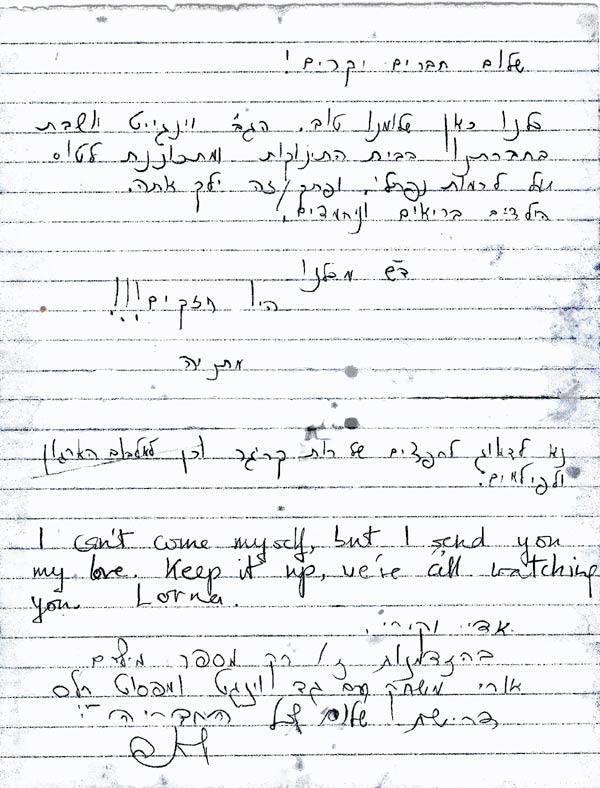 שלום חברים יקרים!
כלנו כאן שלומנו טוב. הגב' וינגייט יושבת
בחברתנו בבית התינוקות ומתכוננת לטוס
מעל לרמות נפתלי.
הילדים בריאים ונחמדים.
ד"ש מכלנו
היו חזקים!!!
מתניה
נא לדאוג לחפצים של רות קריגר וכן
ולפילמים.
I can't come myself, but I send you
my love. Keep it up, we're all watching
you. Lorna.
אדי יקירי.
בהזדמנות זו רק מספר מילים
אורי משחק עם גד וינגט ומפטפט
דרישת שלום לכל החבריה